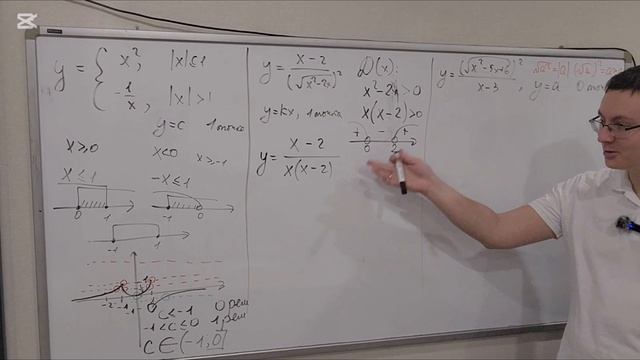 y = { x², |x| ≤ 1
-1/x, |x| > 1
y = c 1 точка
x ≥ 0
x < 0 x ≥ -1
x ≤ 1
-x ≤ 1
0 1
-1 0
-1 1
-2 -1
c < -1 0 реш
-1 < c ≤ 0 1 реш
c ∈ (-1, 0]
y = (x-2)/(√(x²-2x))²
y = kx, 1 точка
y = (x-2)/(x(x-2))
D(x):
x² - 2x > 0
x(x-2) > 0
+ - +
0 2
y = (√(x²-5x+6))²/(x-3), y = a 0 точ